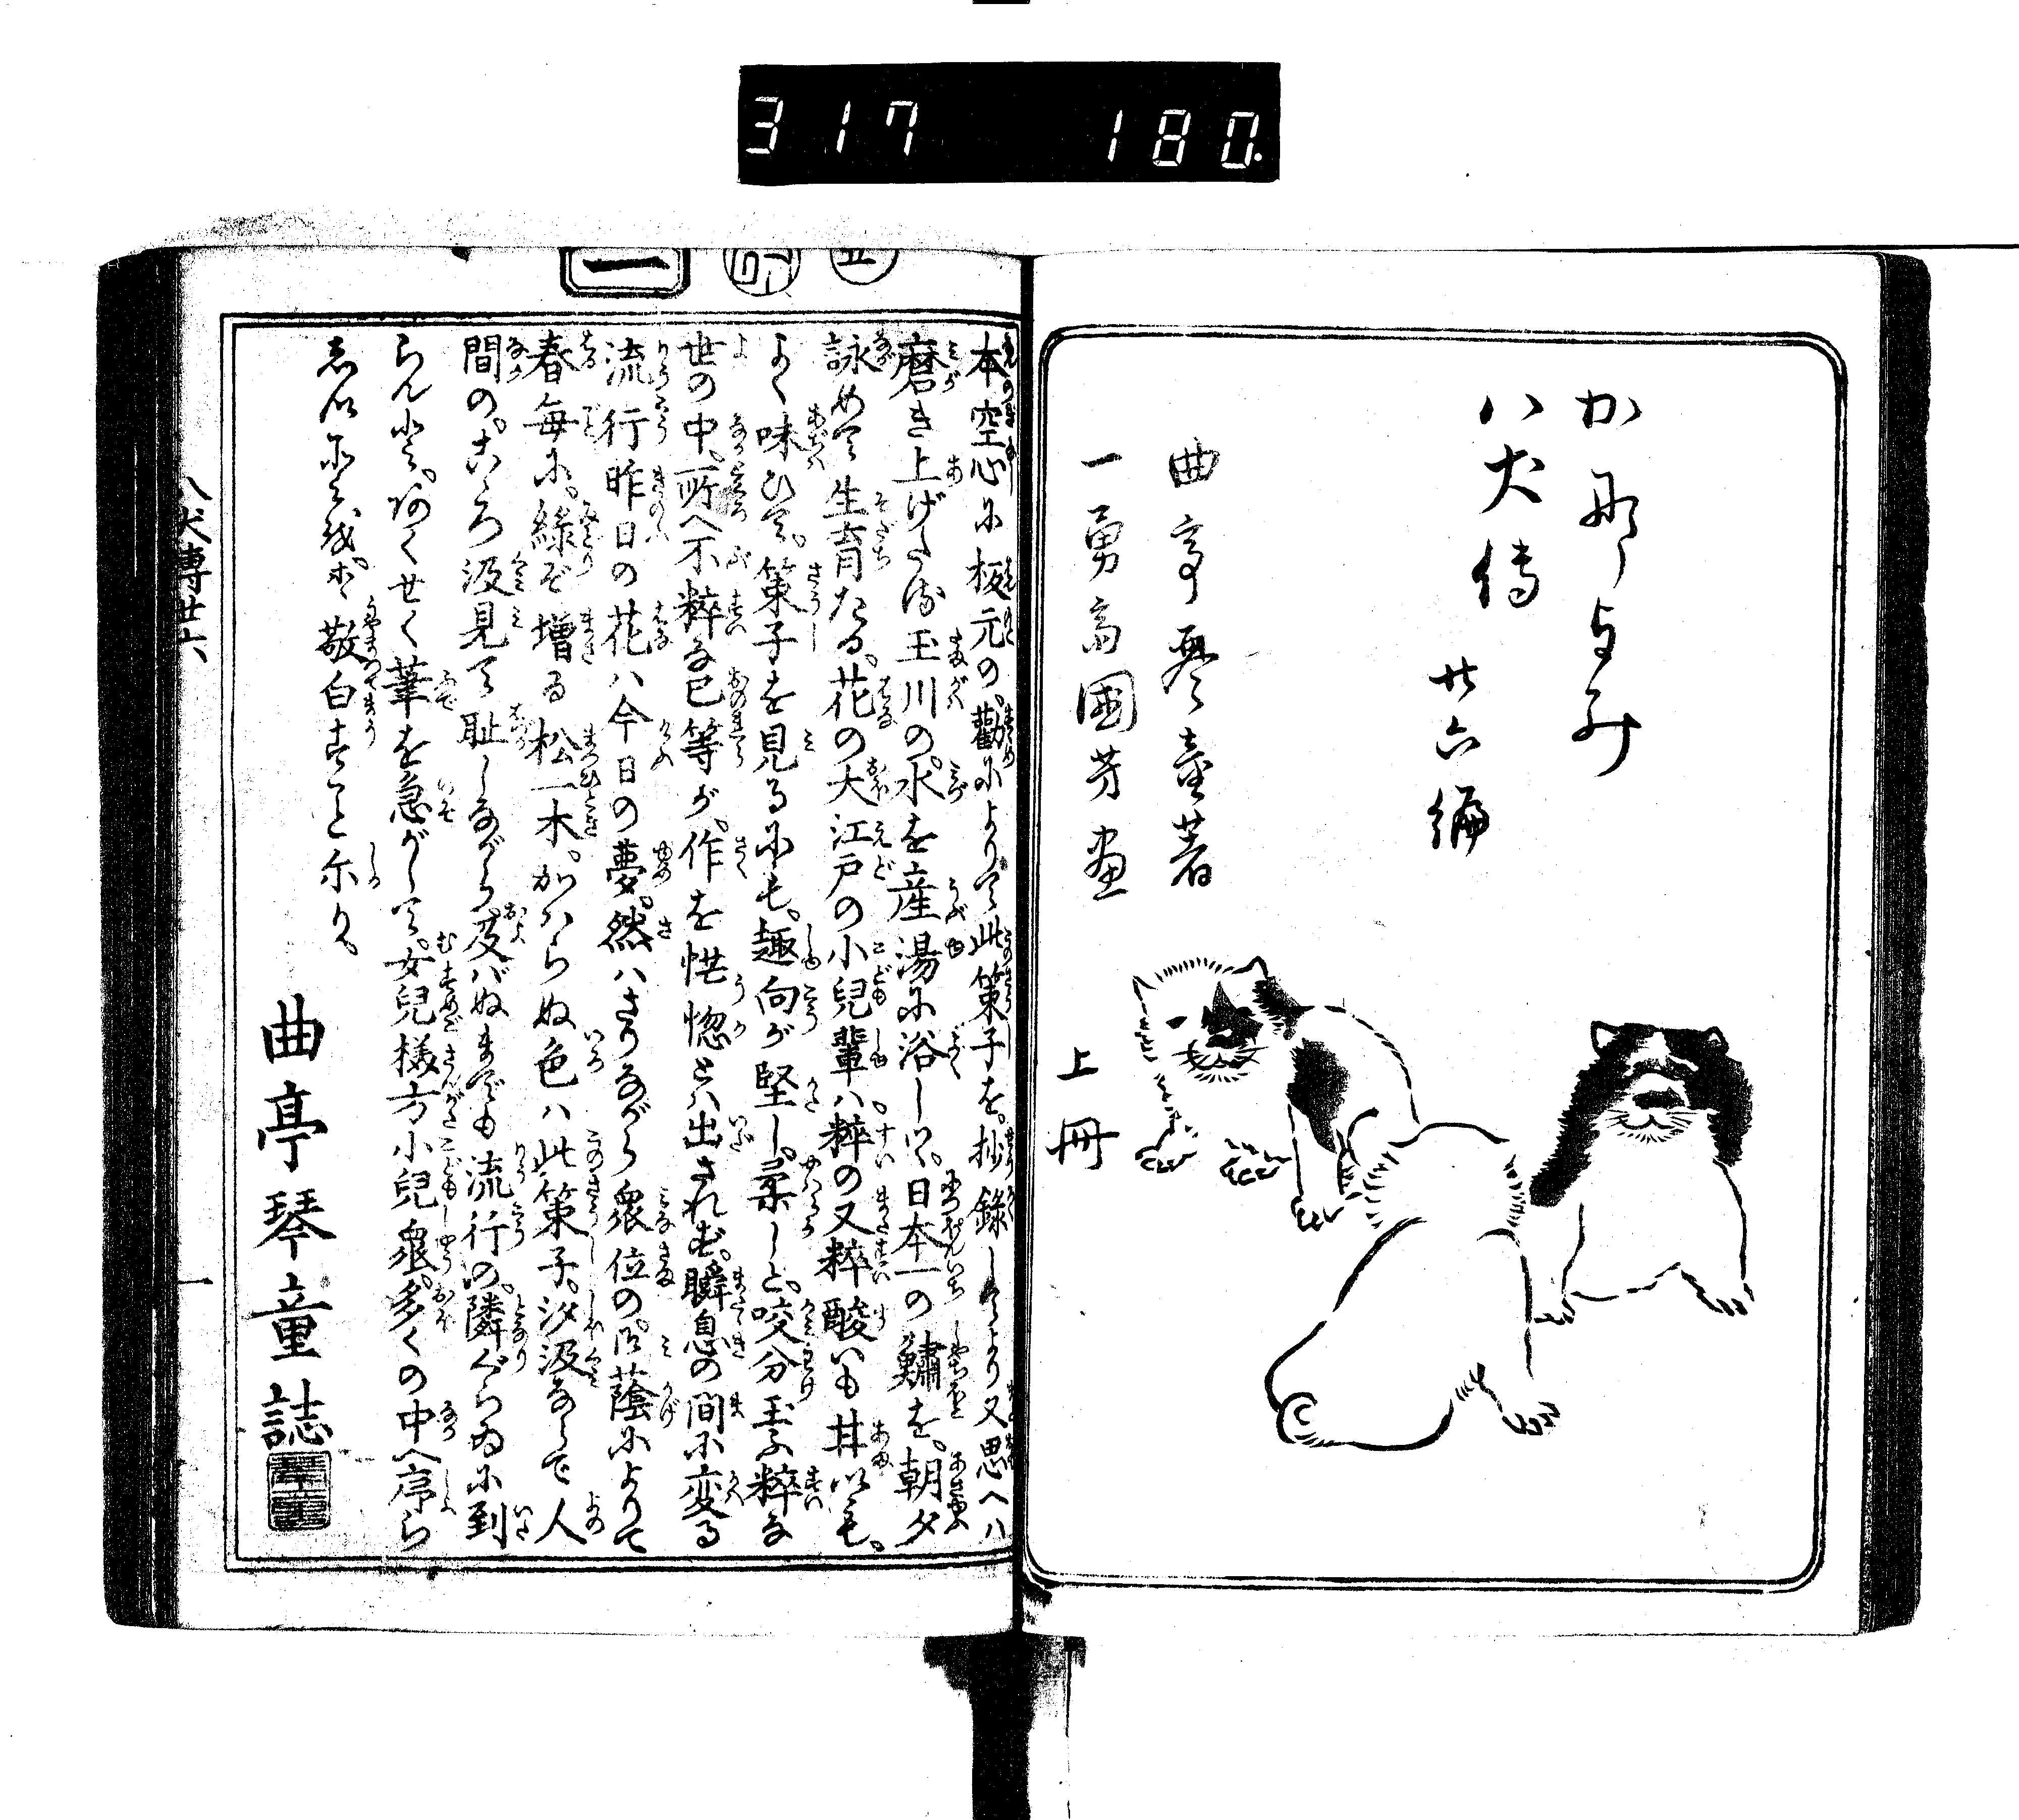 317 180
かなよみ
八犬傳
廿六編
曲亭琴童著
一勇斎國芳画
上冊
本空心に板元の。勸によりて此策子を。抄録してより又思へハ
磨き上げたる玉川の。水を産湯に浴しつゝ。日本一の鱐を。朝夕
詠めて生育たる。花の大江戸の小兒輩ハ。粹の又粹酸いも甘いも。
よく味ひて。策子を見るにも。趣向が堅し。柔しと。咬分玉ふ粹な
世の中。所へ不粹な己等が。作を恍惚とハ出されず。瞬息の間に変る
流行昨日の花ハ今日の夢。然ハさりながら衆位の。御蔭によりて
春毎に。緑ぞ増る松一木。かハらぬ色ハ此策子。汐汲ならで人
間の。こゝろ汲見て恥しながら。及バぬまでも流行の。隣ぐらゐに到
らんと。
筆を急がして。女兒様方小兒衆。多くの中へ序ら
敬白すこと尓り。
曲亭琴童誌
八犬傳廿六
一